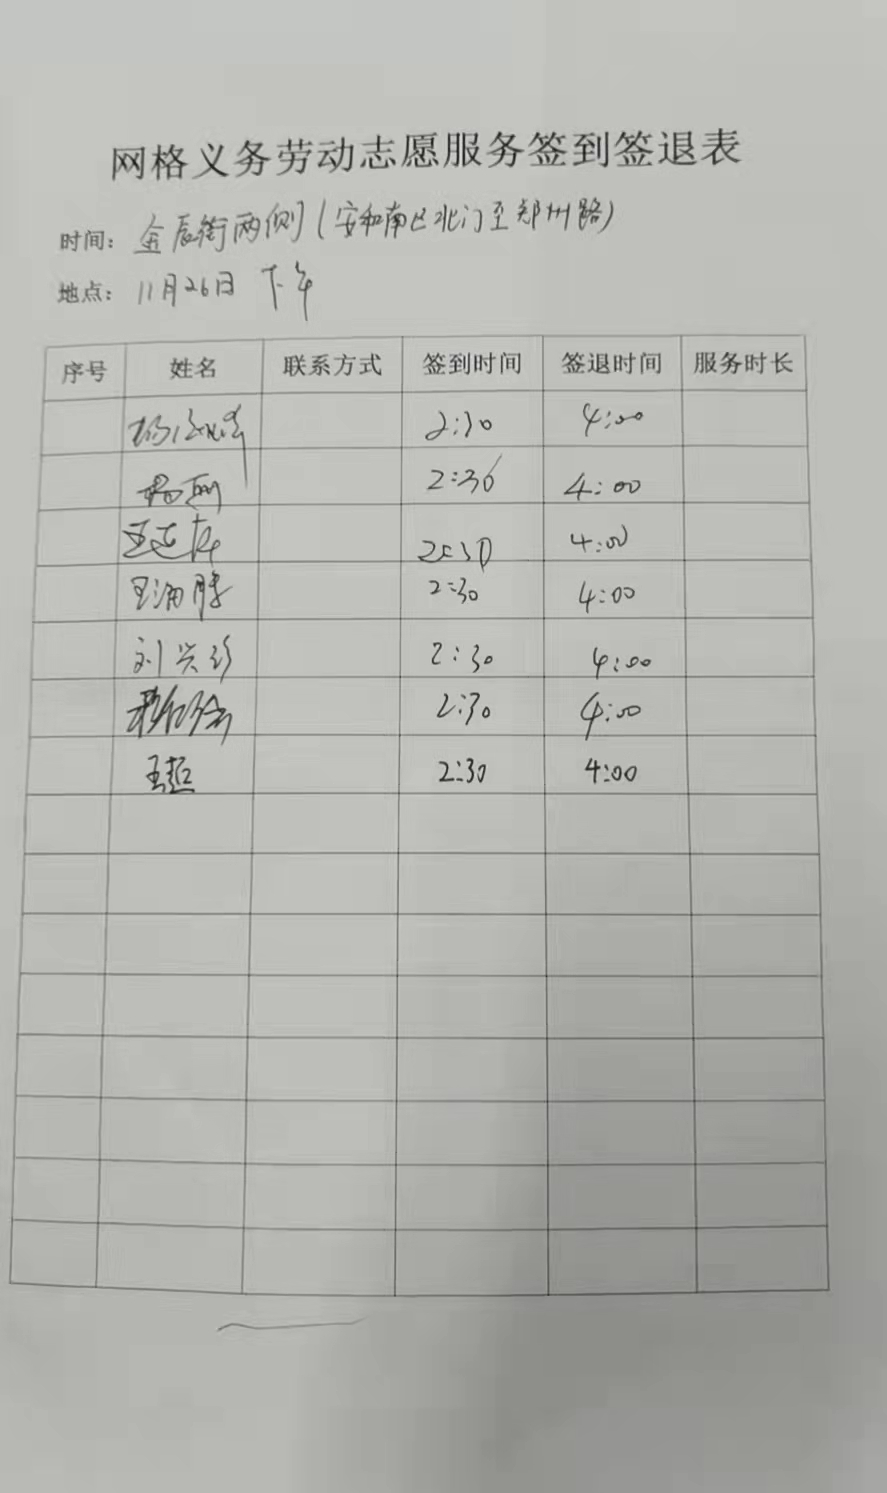 网格义务劳动志愿服务签到签退表
时间：金辰街两侧(安和南区北门至郑州路)
地点：11月26日 下午
序号 姓名 联系方式 签到时间 签退时间 服务时长
2:30 4:00
2:30 4:00
2:30 4:00
2:30 4:00
刘兴珍 2:30 4:00
2:30 4:00
王超 2:30 4:00